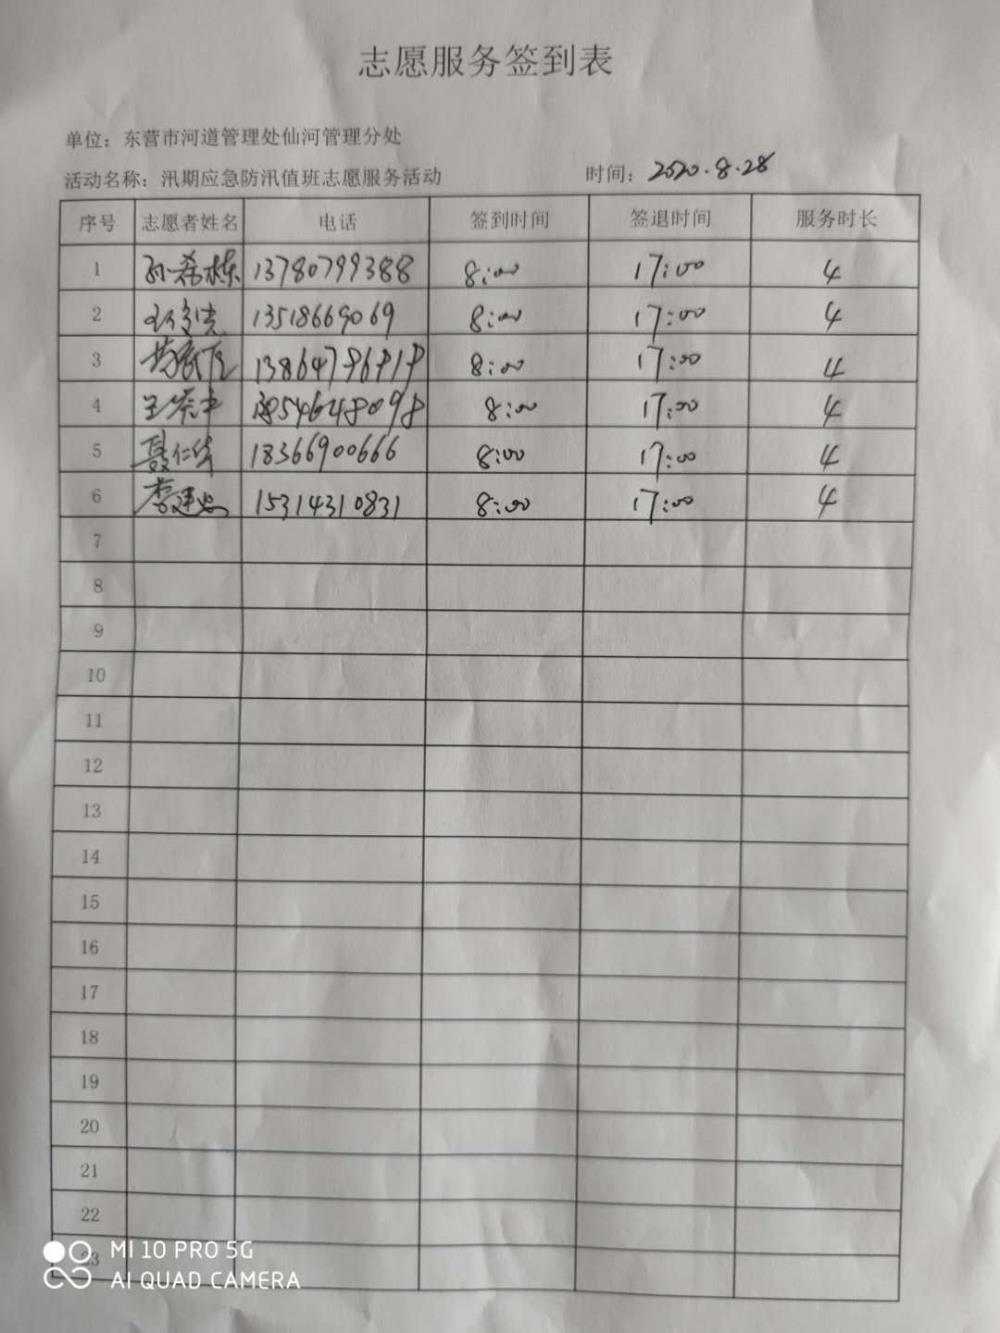 志愿服务签到表
单位：东营市河道管理处仙河管理分处
活动名称：汛期应急防汛值班志愿服务活动 时间：2020.8.28
序号 志愿者姓名 电话 签到时间 签退时间 服务时长
1 孙希栋 13780799388 8:00 17:00 4
2 13518669069 8:00 17:00 4
3 8:00 17:00 4
4 8:00 17:00 4
5 聂仁华 18366900666 8:00 17:00 4
6 李建忠 15314310831 8:00 17:00 4
7
8
9
10
11
12
13
14
15
16
17
18
19
20
21
22
23
MI 10 PRO 5G
AI QUAD CAMERA